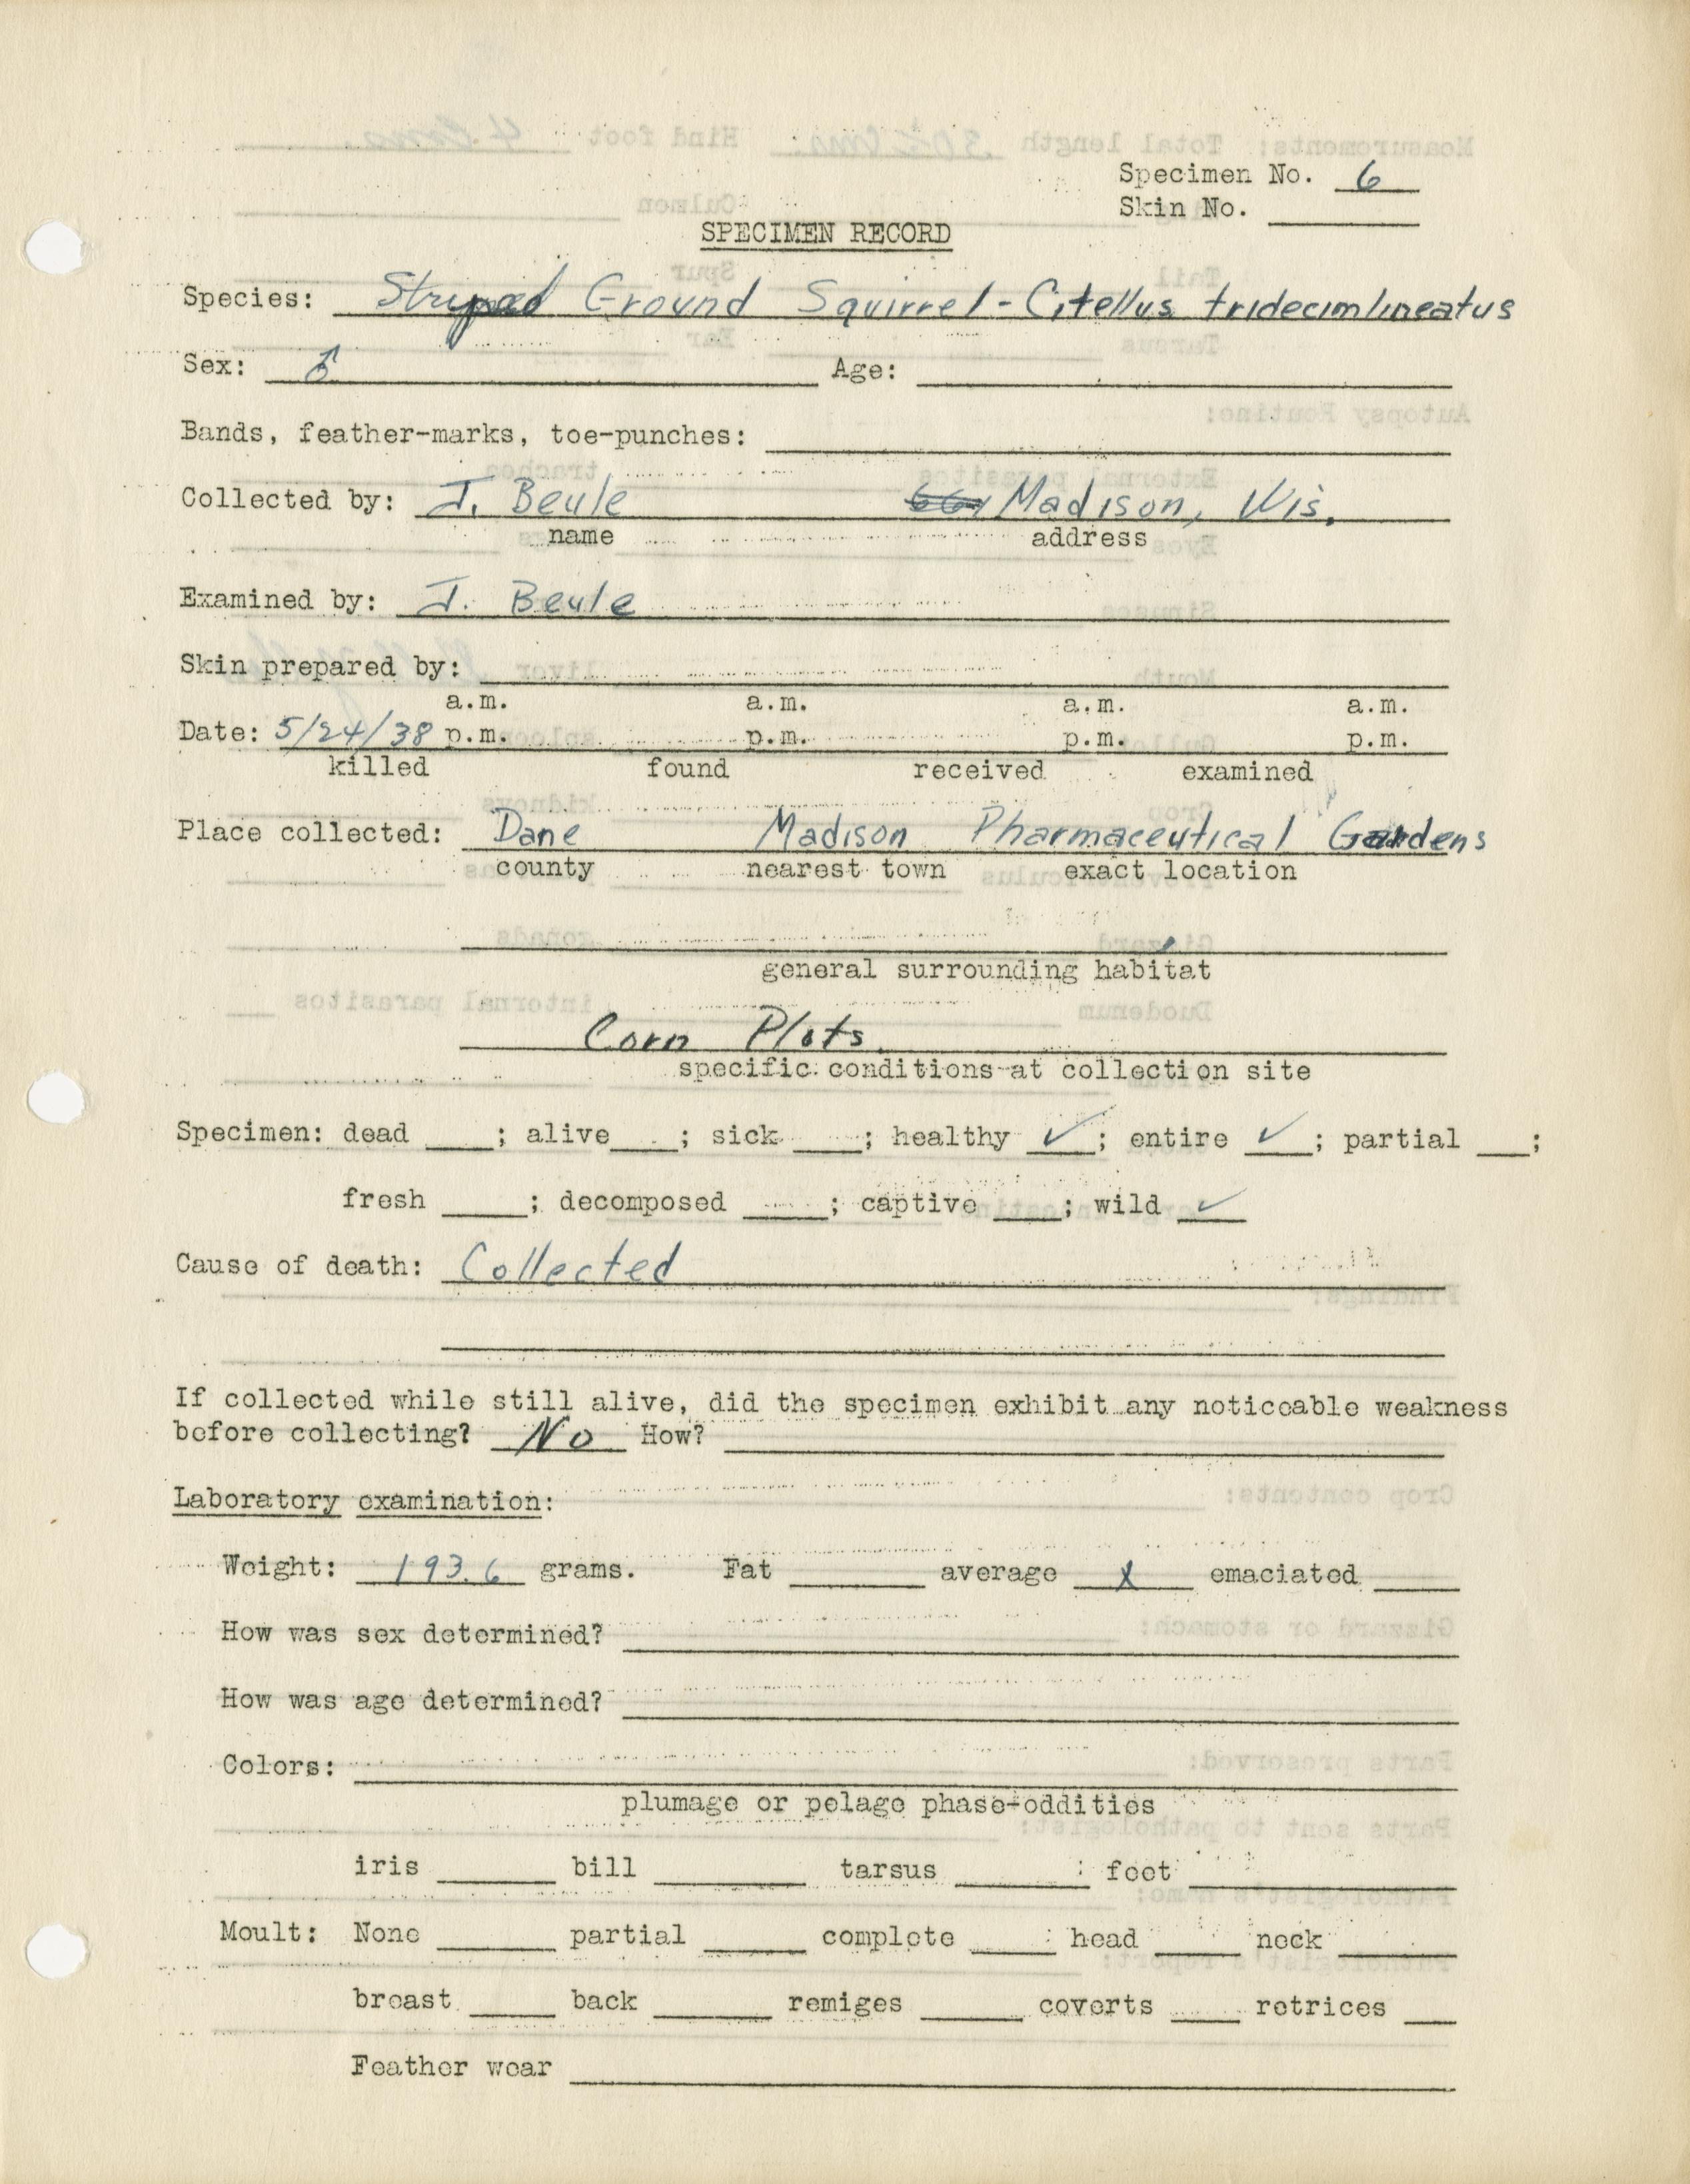 Specimen No. 6
Skin No.
SPECIMEN RECORD
Species: Striped Ground Squirrel - Citellus tridecimlineatus
Sex: ♂ Age:
Bands, feather-marks, toe-punches:
Collected by: J. Beule Madison, Wis.
name address
Examined by: J. Beule
Skin prepared by:
a.m. a.m. a.m. a.m.
Date: 5/24/38 p.m. p.m. p.m. p.m.
killed found received examined
Place collected: Dane Madison Pharmaceutical Gardens
county nearest town exact location
general surrounding habitat
Corn Plots
specific conditions at collection site
Specimen: dead ; alive ; sick ; healthy ✓; entire ✓; partial ;
fresh ; decomposed ; captive ; wild ✓
Cause of death: Collected
If collected while still alive, did the specimen exhibit any noticeable weakness
before collecting? No How?
Laboratory examination:
Weight: 193.6 grams. Fat average x emaciated
How was sex determined?
How was age determined?
Colors:
plumage or pelage phase-oddities
iris bill tarsus foot
Moult: None partial complete head neck
breast back remiges coverts retrices
Feather wear